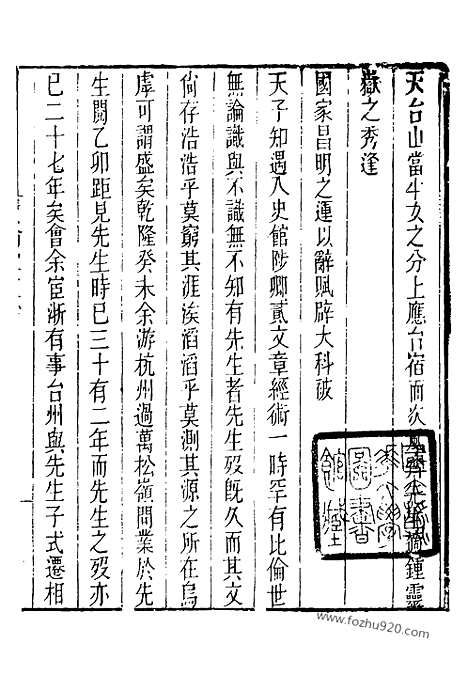 天台山當牛女之分上應台宿而次風齊先生鍾靈
嶽之秀逢
國家昌明之運以辭賦辟大科破
天子知遇入史館陟卿貳文章經術一時罕有比倫世
無論識與不識無不知有先生者先生歿旣久而其文
尙存浩浩乎莫窮其涯涘滔滔乎莫測其源之所在烏
虖可謂盛矣乾隆癸未余游杭州過萬松嶺問業於先
生閱乙卯距見先生時已三十有二年而先生之歿亦
已二十七年矣會余宦浙有事台州與先生子式遷相
www.fozhu920.com